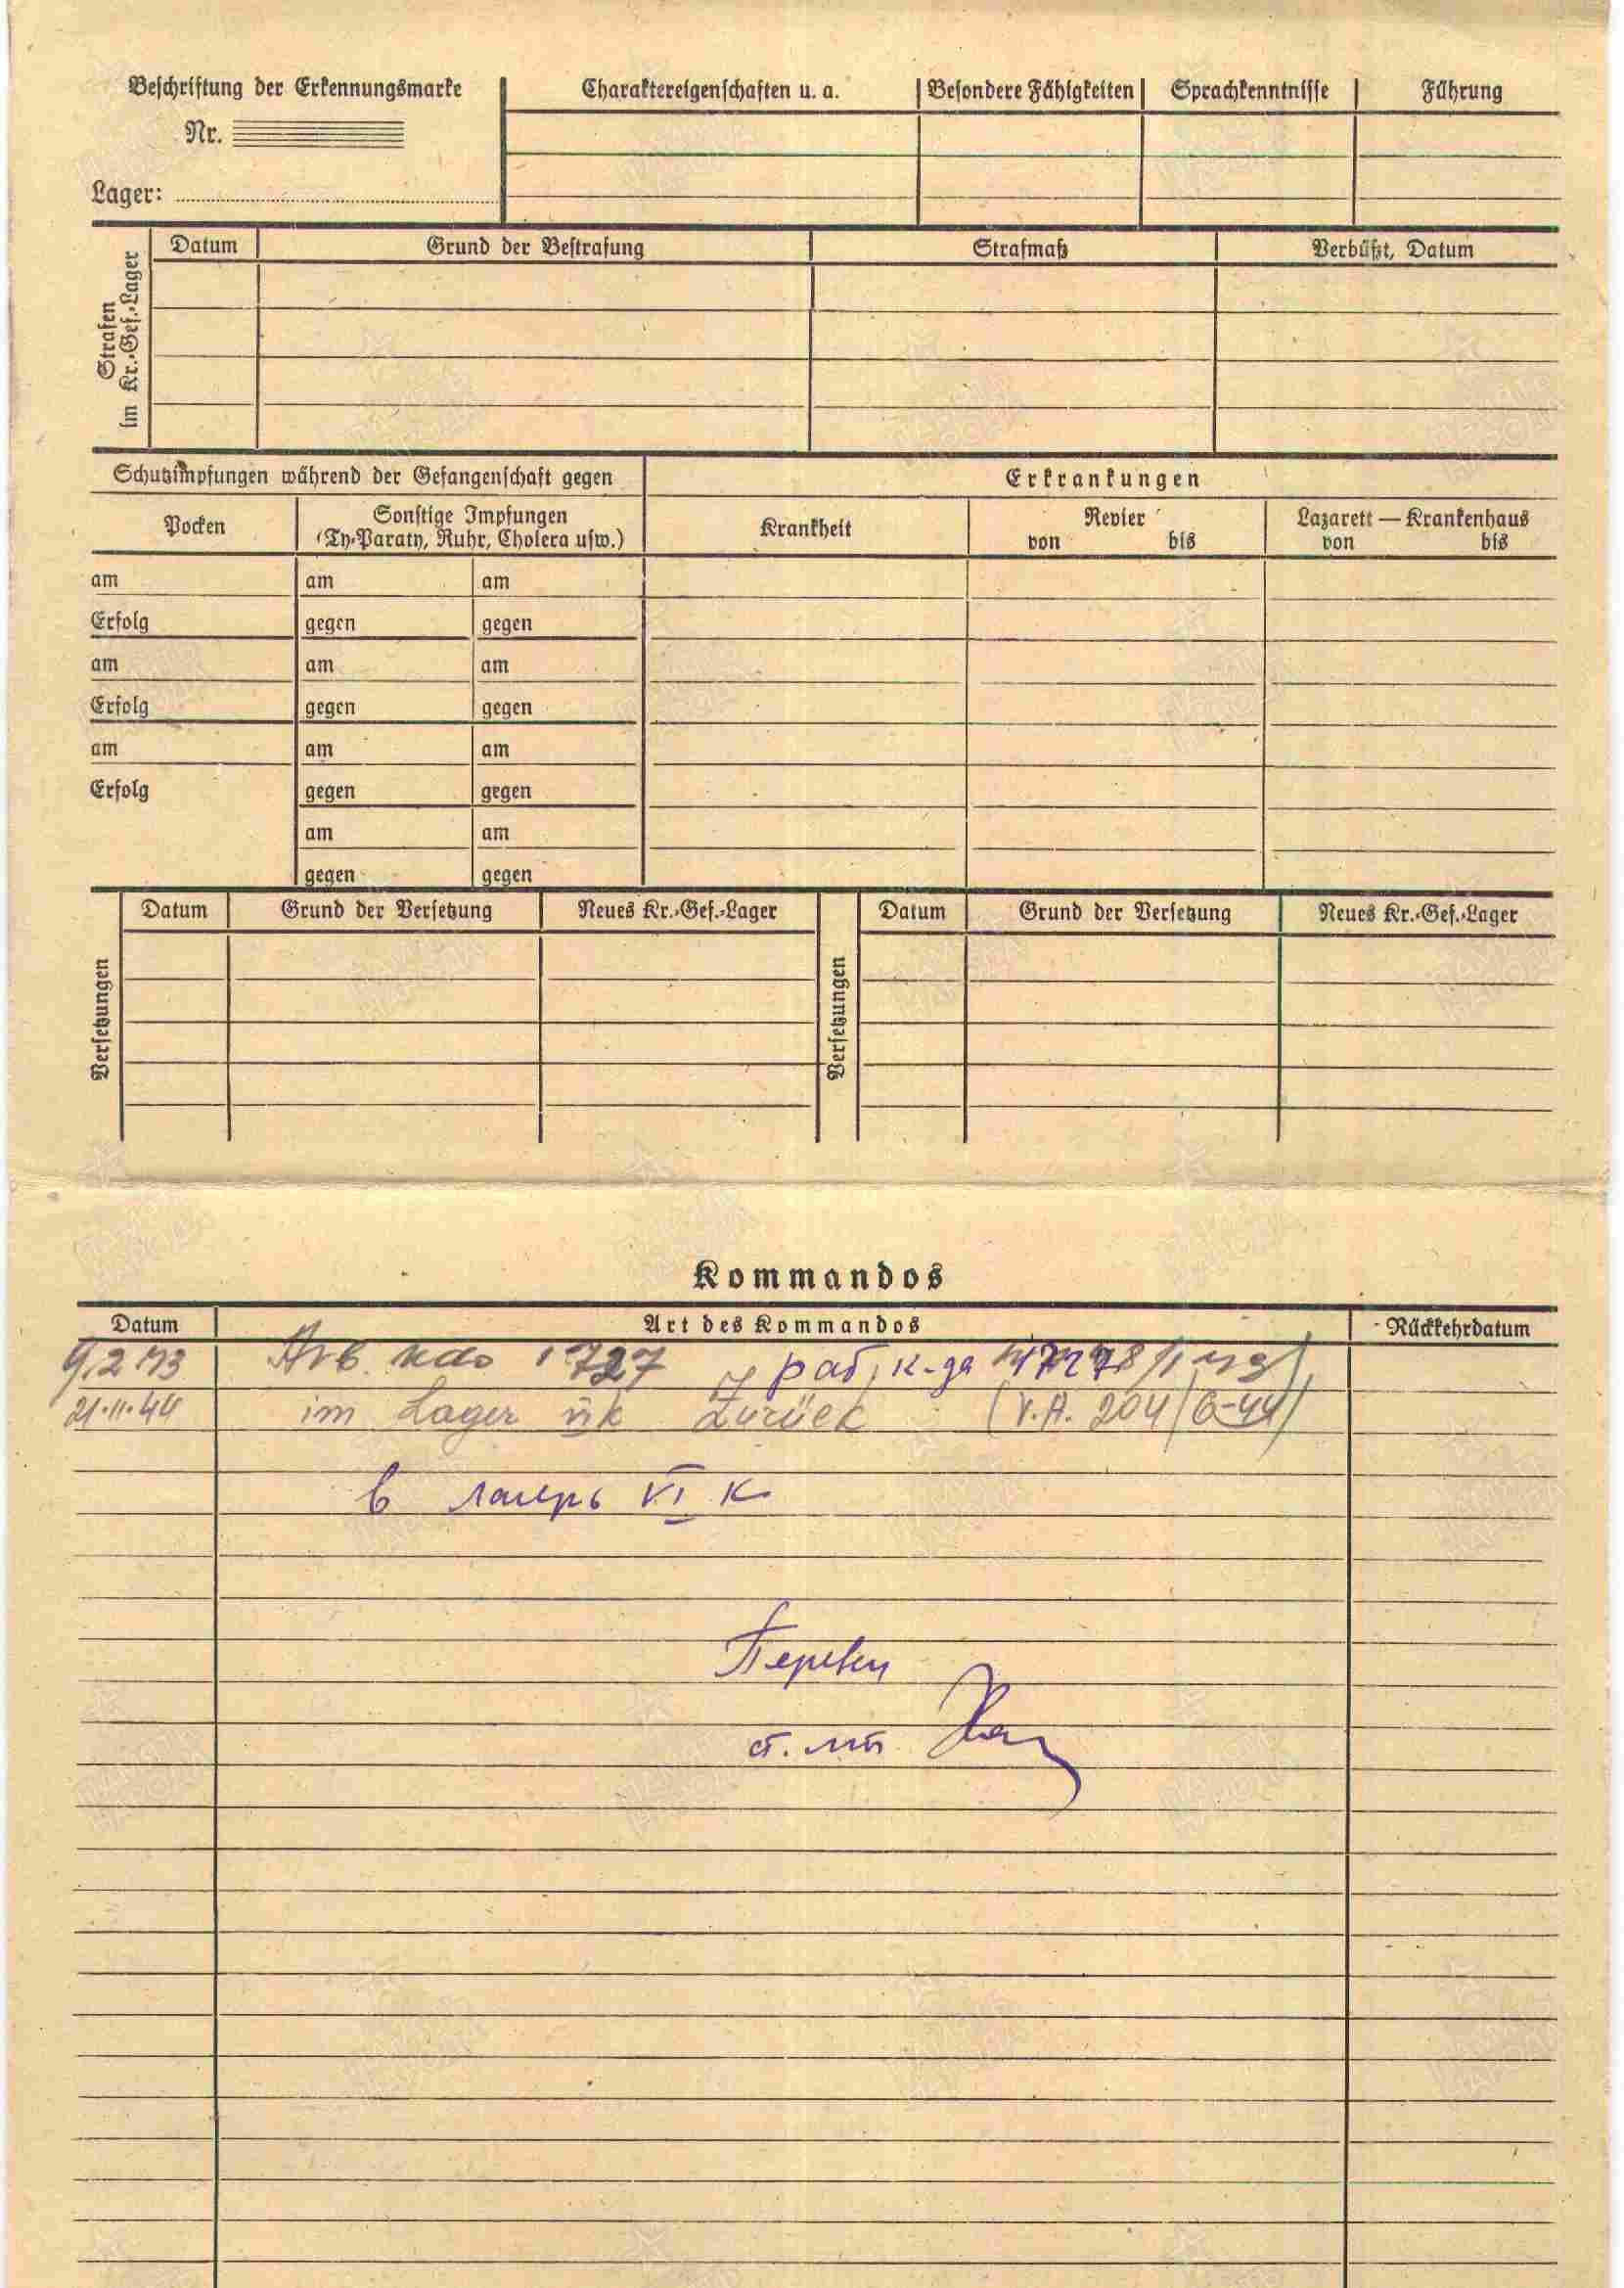 Beschriftung der Erkennungsmarke
Nr.
Lager:
Charaktereigenschaften u. a. Besondere Fähigkeiten Sprachkenntnisse Führung
Strafen im Kr.-Gef.-Lager
Datum Grund der Bestrafung Strafmaß Verbüßt, Datum
Schutzimpfungen während der Gefangenschaft gegen
Erkrankungen
Pocken
Sonstige Impfungen
(Ty-Paraty, Ruhr, Cholera usw.)
Krankheit
Revier
von bis
Lazarett — Krankenhaus
von bis
am am am
Erfolg gegen gegen
am am am
Erfolg gegen gegen
am am am
Erfolg gegen gegen
am am
gegen gegen
Versetzungen
Datum Grund der Versetzung Neues Kr.-Gef.-Lager
Versetzungen
Datum Grund der Versetzung Neues Kr.-Gef.-Lager
Kommandos
Datum Art des Kommandos Rückkehrdatum
9.2.43 Arb. kdo 1727 раб. к-да
21.11.44 im Lager Zurück (V.A. 204/6-44)
в лагерь VI К
Перевел
ст. л-т